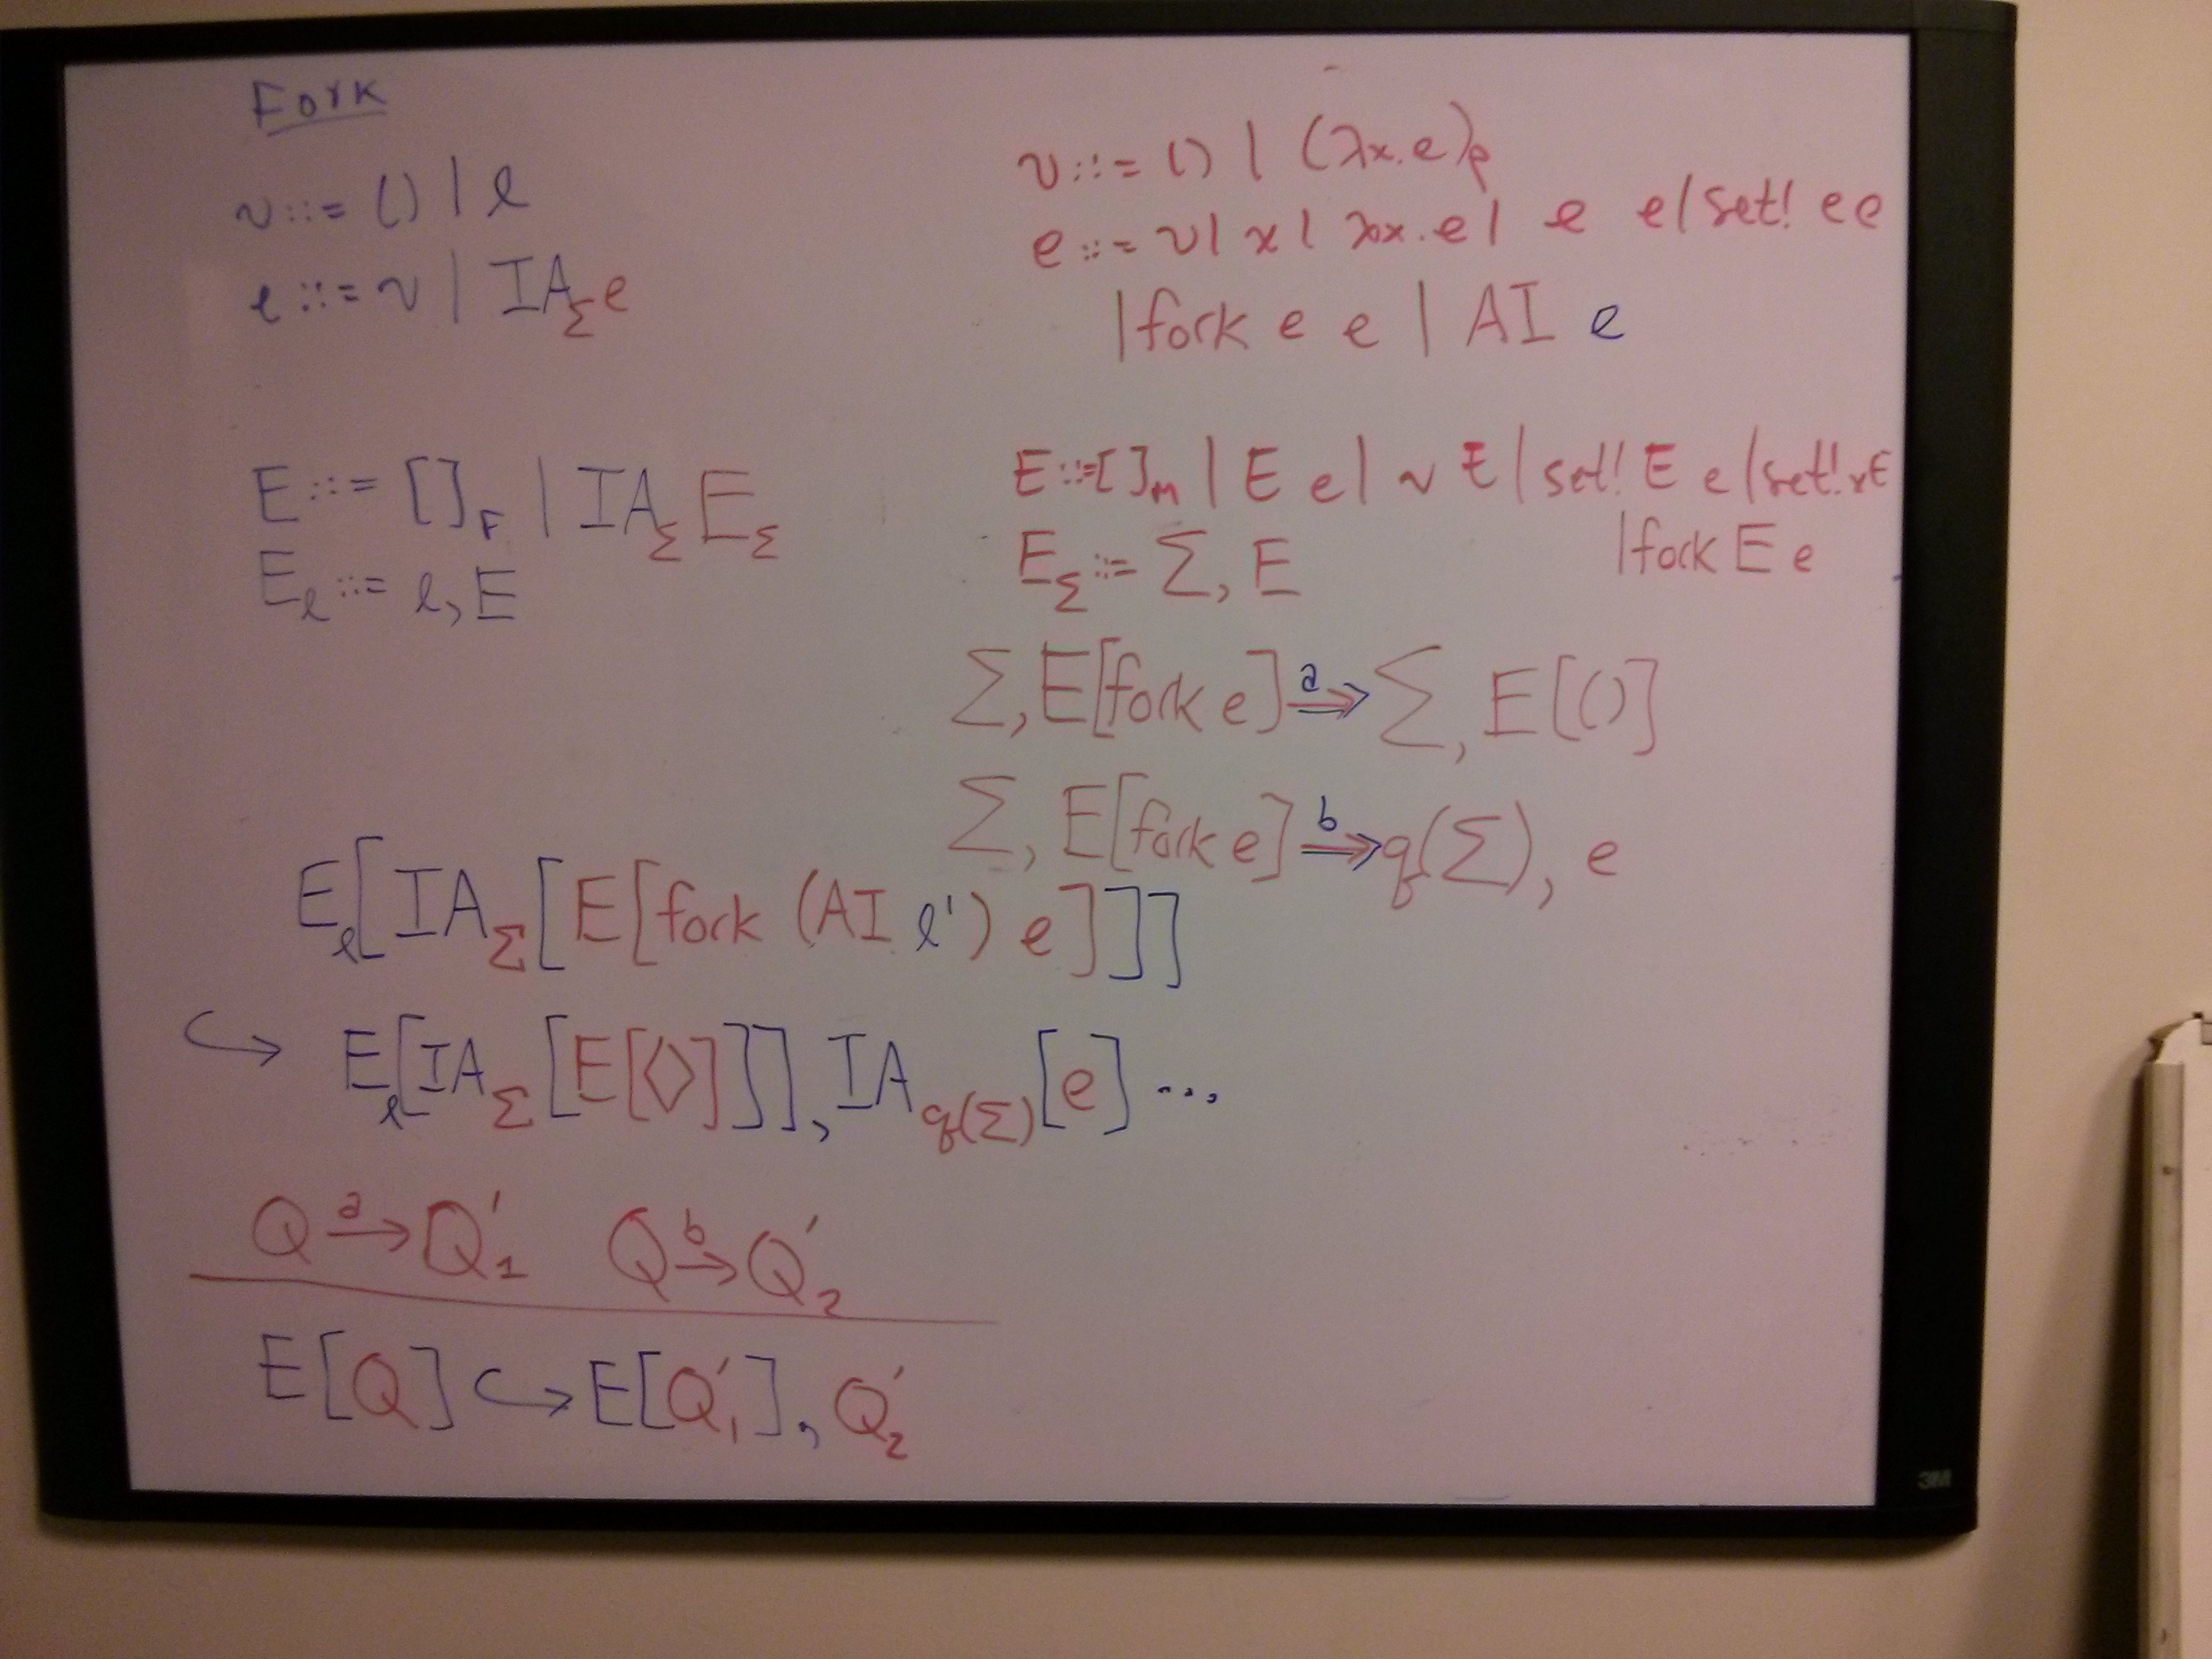 Fork
v ::= () | l
e ::= v | IA_Σ e
v ::= () | (λx.e)_ρ
e ::= v | x | λx.e | e e | set! e e
| fork e e | AI e
E ::= []_F | IA_Σ E_Σ
E_l ::= l, E
E ::= []_m | E e | v E | set! E e | set! v E
| fork E e
E_Σ ::= Σ, E
Σ, E[fork e] ⇒^a Σ, E[()]
Σ, E[fork e] ⇒^b q(Σ), e
E_l[IA_Σ[E[fork (AI l') e]]]
↪ E_l[IA_Σ[E[<>]]], IA_q(Σ)[e] ...
Q →^a Q'_1 Q →^b Q'_2
E[Q] ↪ E[Q'_1], Q'_2
3M